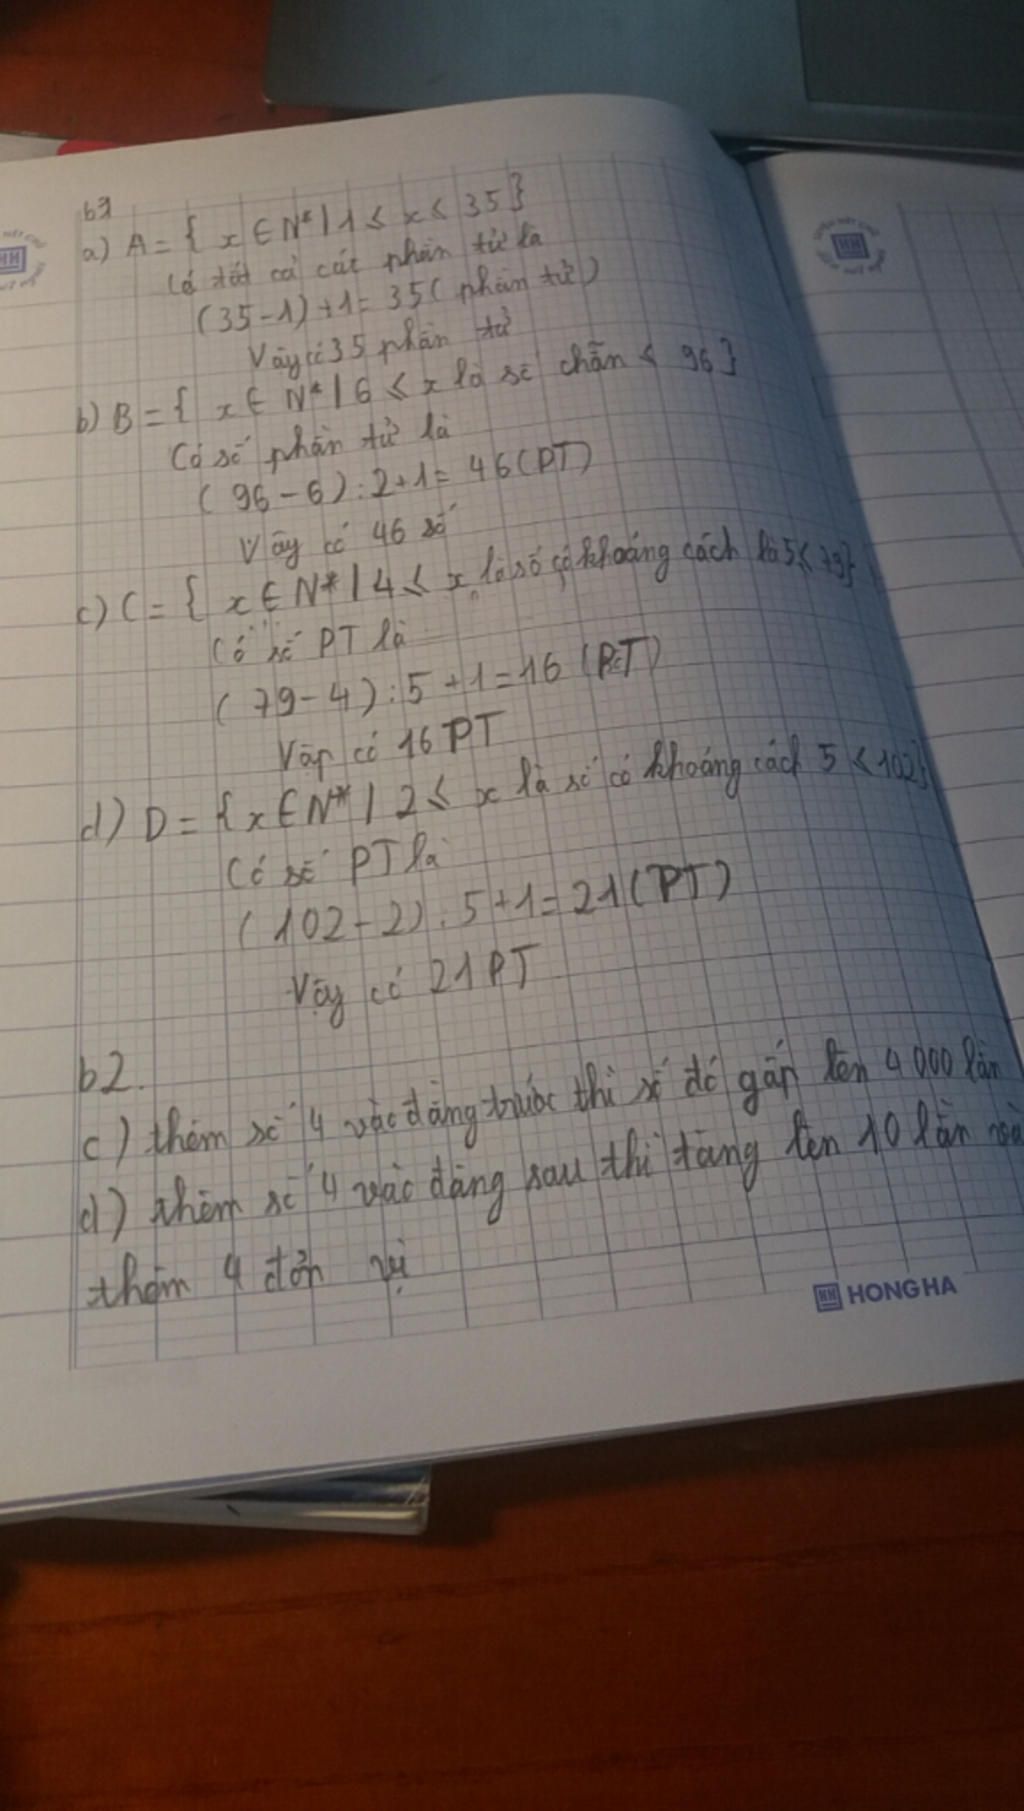 b1
a) A = { x ∈ N* | 1 ≤ x < 35 }
Có tất cả các phần tử là
(35-1)+1= 35 ( phần tử )
Vậy có 35 phần tử
b) B = { x ∈ N* | 6 ≤ x là số chẵn < 96 }
Có số phần tử là
( 96 - 6 ) : 2 + 1 = 46 (PT)
Vậy có 46 số
c) C = { x ∈ N* | 4 ≤ x là số có khoảng cách là 5 ≤ 79 }
Có số PT là
( 79 - 4 ) : 5 + 1 = 16 (PT)
Vậy có 16 PT
d) D = { x ∈ N* | 2 ≤ x là số có khoảng cách 5 < 102 }
Có số PT là
( 102 - 2 ) : 5 + 1 = 21 (PT)
Vậy có 21 PT
b2.
c) thêm số 4 vào đằng trước thì số đó gấp lên 4000 lần
d) thêm số 4 vào đằng sau thì tăng lên 10 lần và
thêm 4 đơn vị
HH HONG HA
HH
HH